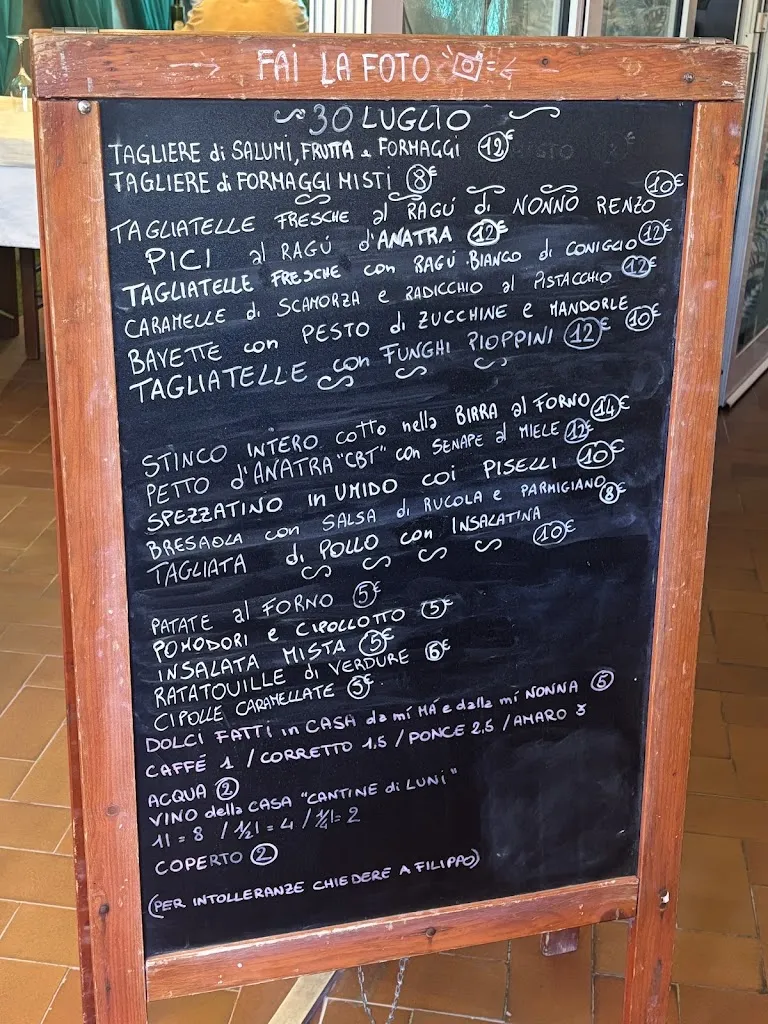 FAI LA FOTO
30 LUGLIO
TAGLIERE di SALUMI, FRUTTA e FORMAGGI 12€
TAGLIERE di FORMAGGI MISTI 8€
TAGLIATELLE FRESCHE al RAGÚ di NONNO RENZO 10€
PICI al RAGÚ d'ANATRA 12€
TAGLIATELLE FRESCHE con RAGÚ BIANCO di CONIGLIO 12€
CARAMELLE di SCAMORZA e RADICCHIO al PISTACCHIO 12€
BAVETTE con PESTO di ZUCCHINE e MANDORLE 10€
TAGLIATELLE con FUNGHI PIOPPINI 12€
STINCO INTERO cotto nella BIRRA al FORNO 14€
PETTO d'ANATRA "CBT" con SENAPE al MIELE 12€
SPEZZATINO in UMIDO coi PISELLI 10€
BRESAOLA con SALSA di RUCOLA e PARMIGIANO 8€
TAGLIATA di POLLO con INSALATINA 10€
PATATE al FORNO 5€
POMODORI e CIPOLLOTTO 5€
INSALATA MISTA 5€
RATATOUILLE di VERDURE 5€
CIPOLLE CARAMELLATE 5€
DOLCI FATTI in CASA da mí MÁ e dalla mí NONNA 5
CAFFÉ 1 / CORRETTO 1,5 / PONCE 2,5 / AMARO 3
ACQUA 2
VINO della CASA "CANTINE di LUNI"
1l = 8 / 1/2l = 4 / 1/4l = 2
COPERTO 2
(PER INTOLLERANZE CHIEDERE A FILIPPO)